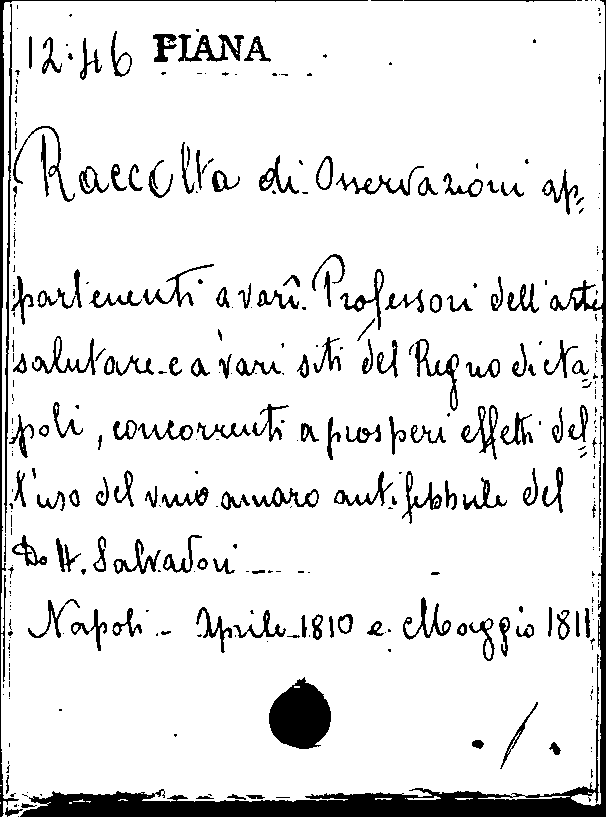 12.46 PIANA
Raccolta di Osservazioni ap=
partenenti a varî Professori dell'arte
salutare e a vari siti del Regno di Na=
poli, concorrenti a prosperi effetti del=
l'uso del vino amaro antifebbrile del
Dott. Salvadori
Napoli - Aprile 1810 e Maggio 1811
./.